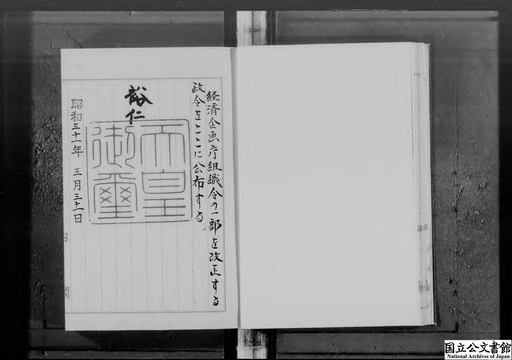 経済企画庁組織令の一部を改正する
政令をここに公布する。
裕仁
天皇
御璽
昭和三十一年三月三十一日
国立公文書館
National Archives of Japan